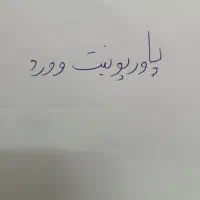 پاورپوینت وورد